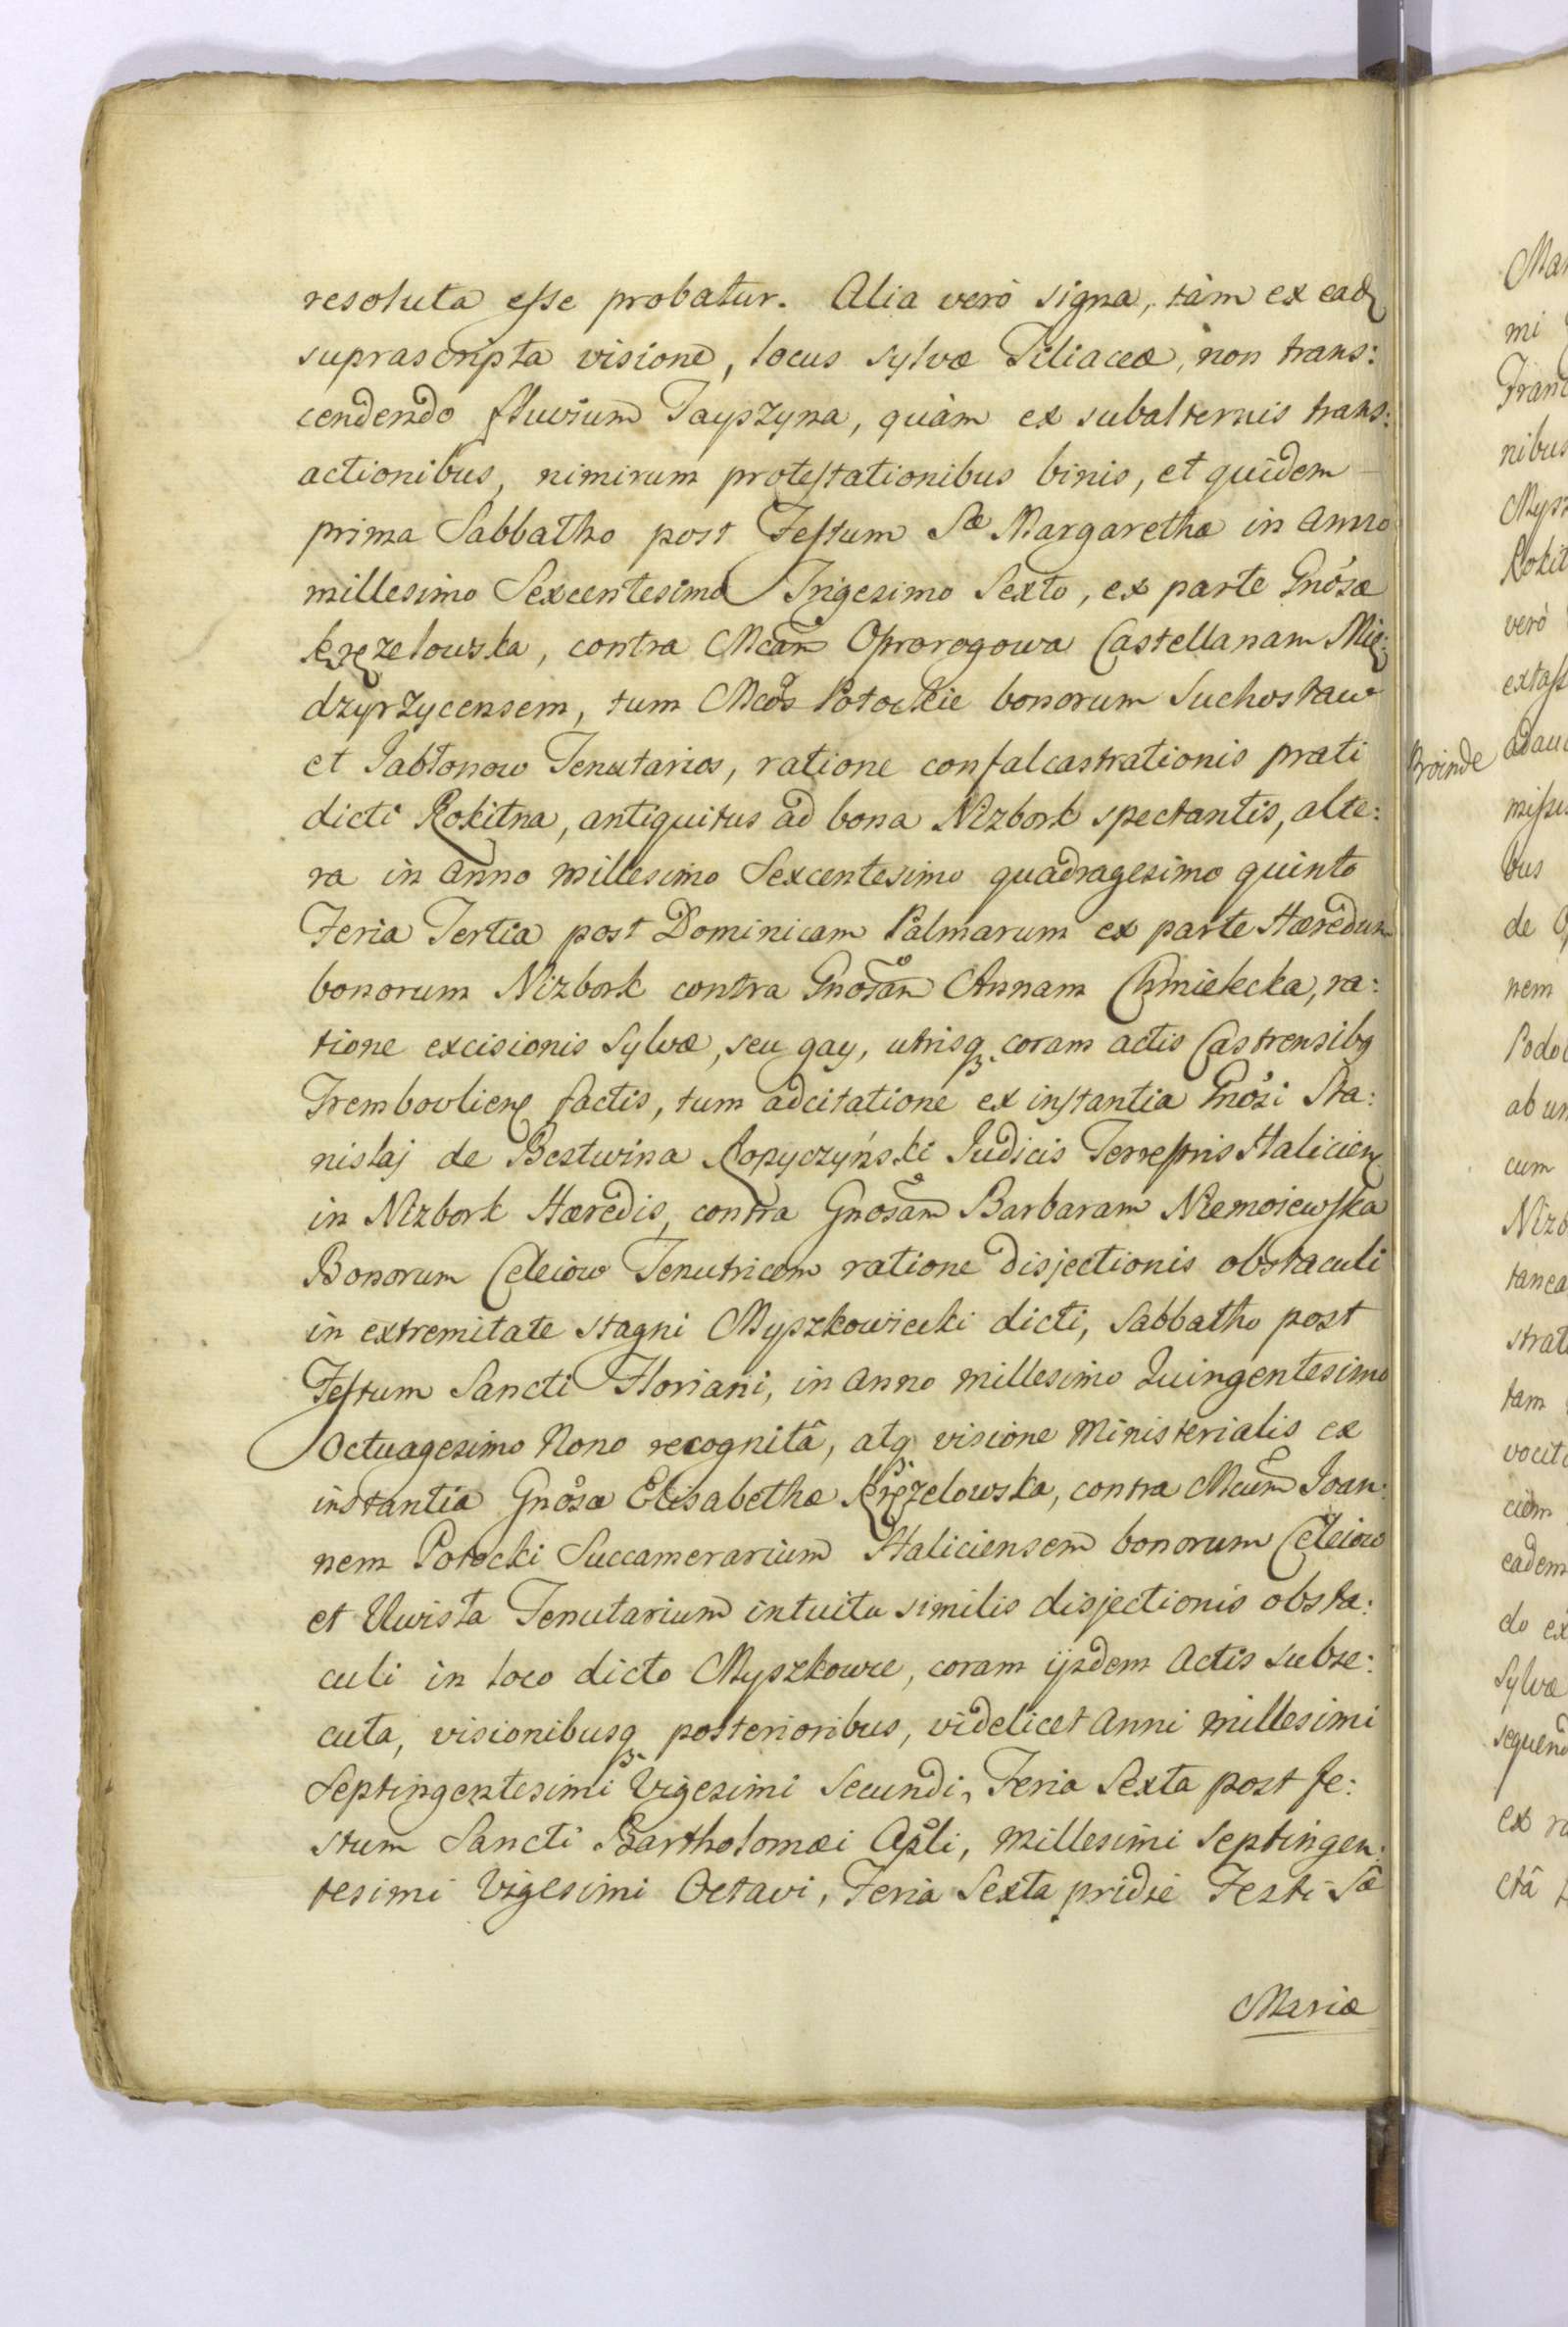 resoluta esse probatur. Alia verò signa, tàm ex eadę
suprascripta visione, locus sylvæ Tiliaceæ, non trans:
cendendo fluvium Tayszyna, quàm ex subalternis trans:
actionibus, nimirum protestationibus binis, et quidem
prima Sabbatho post Festum Sæ Margarethæ in Anno
millesimo Sexcentesimo Trigesimo Sexto, ex parte Gnosæ
Kręzelowska, contra Mcam Oprorogowa Castellanam Mię:
dzyrzycensem, tum Mcos Potockie bonorum Suchostaw
et Jabłonow Tenutarios, ratione confalcastrationis prati
dicti Rokitna, antiquitus ad bona Nizbork spectantis, alte:
ra in Anno millesimo Sexcentesimo quadragesimo quinto
Feria Tertia post Dominicam Palmarum ex parte Hæredum
bonorum Nizbork contra Gnosam Annam Chmielecka, ra:
tione excisionis Sylvæ, seu gay, utrisq. coram actis Castrensibq
Trembovlienę factis, tum adcitatione ex instantia Gnosi Sta:
nislaj de Bestwina Kopyczyński Judicis Terrestris Halicienę
in Nizbork Hæredis, contra Gnosam Barbaram Niemoiewska
Bonorum Celeiow Tenutricem ratione disjectionis obstaculi
in extremitate stagni Myszkowiecki dicti, Sabbatho post
Festum Sancti Floriani, in anno millesimo Quingentesimo
Octuagesimo Nono recognitâ, atq visione Ministerialis ex
instantia Gnosæ Elisabethæ Kręzelowska, contra Mcum Joan:
nem Potocki Succamerarium Haliciensem bonorum Celeiow
et Uwisła Tenutarium intuitu similis disjectionis obsta:
culi in loco dicto Myszkowce, coram ijsdem Actis subse:
cuta, visionibusq posterioribus, videlicet Anni millesimi
Septingentesimi Vigesimi Secundi, Feria Sexta post fe:
stum Sancti Bartholomæi Apli, millesimi septingen:
tesimi Vigesimi Octavi, Feria Sexta pridie Festi Sæ
Mariæ
Proinde